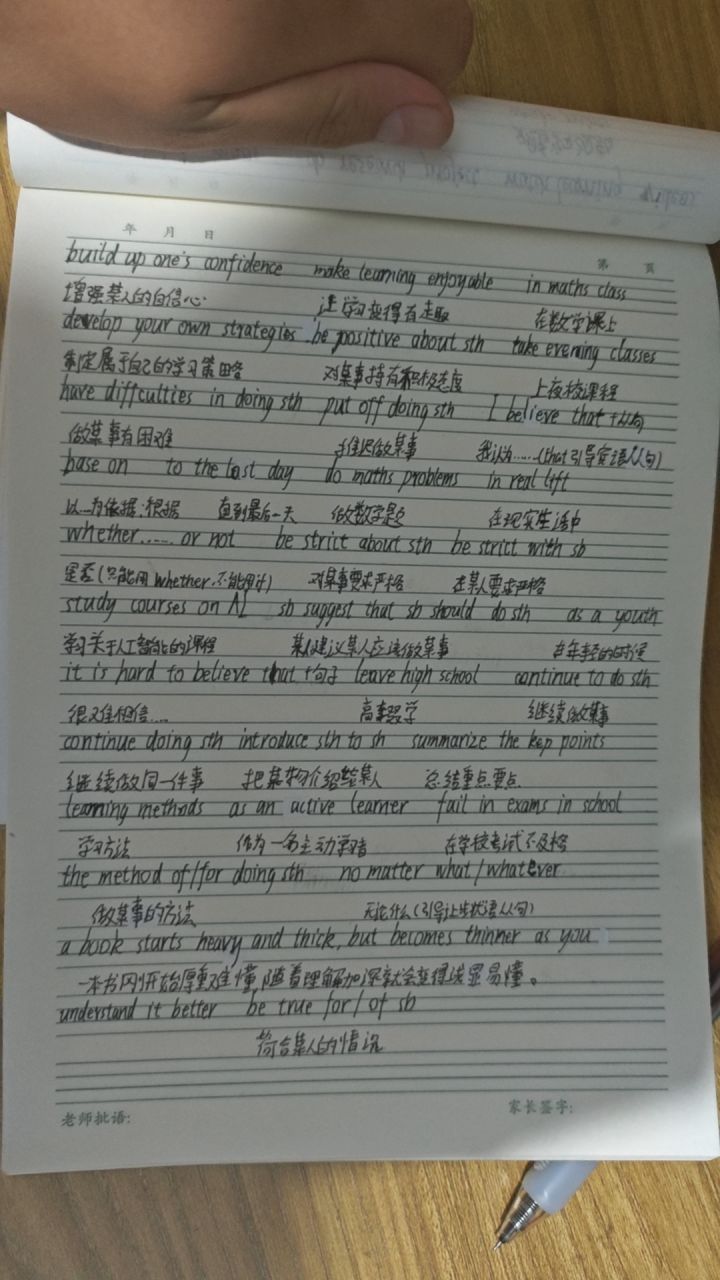 年 月 日
第 页
build up one's confidence make learning enjoyable in maths class
增强某人的自信心 让学习变得有趣 在数学课上
develop your own strategies be positive about sth take evening classes
制定属于自己的学习策略 对某事持有积极态度 上夜校课程
have difficulties in doing sth put off doing sth I believe that +从句
做某事有困难 推迟做某事 我认为……(that引导宾语从句)
base on to the last day do maths problems in real lift
以…为依据;根据 直到最后一天 做数学题 在现实生活中
whether…… or not be strict about sth be strict with sb
是否(只能用whether,不能用if) 对某事要求严格 在某人要求严格
study courses on AI sb suggest that sb should do sth as a youth
学习关于人工智能的课程 某人建议某人应该做某事 在年轻的时候
it is hard to believe that +句子 leave high school continue to do sth
很难相信…… 高中 学 继续做某事
continue doing sth introduce sth to sb summarize the key points
继续做同一件事 把某物介绍给某人 总结重点要点
learning methods as an active learner fail in exams in school
学习方法 作为一名主动学习者 在学校考试不及格
the method of/for doing sth no matter what/whatever
做某事的方法 无论什么(引导让步状语从句)
a book starts heavy and thick, but becomes thinner as you
一本书刚开始厚重难懂,随着理解加深就会变得浅显易懂。
understand it better be true for/of sb
符合某人的情况
老师批语:
家长签字: